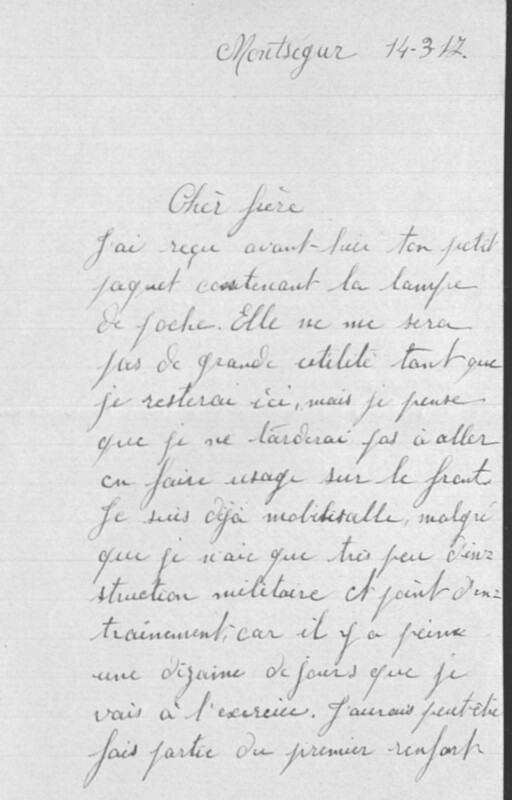 Montségur 14-3-17.
Chèr frère
J'ai reçu avant-hier ton petit
paquet contenant la lampe
de poche. Elle ne me sera
pas de grande utilité tant que
je resterai ici, mais je pense
que je ne tarderai pas à aller
en faire usage sur le front.
Je suis déjà mobilisable, malgré
que je n'aie que très peu d'in=
struction militaire et point d'en=
traînement, car il y a peine
une dizaine de jours que je
vais à l'exercice. J'aurais peut-être
fais partie du premier renfort